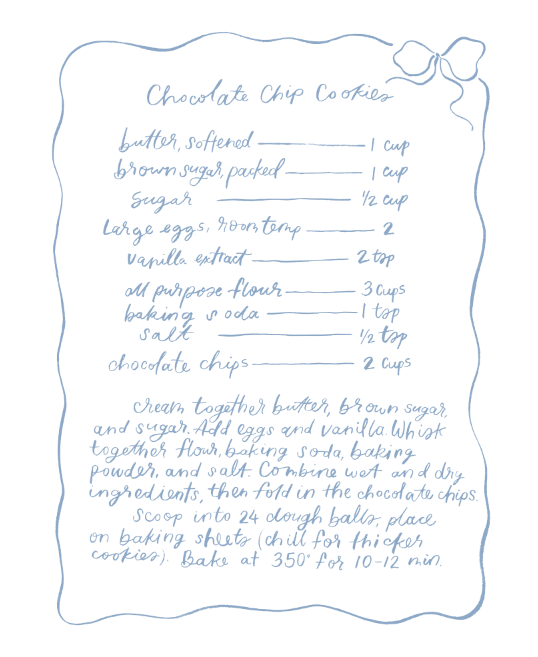 Chocolate Chip Cookies
butter, softened 1 cup
brown sugar, packed 1 cup
Sugar 1/2 cup
Large eggs, room temp 2
vanilla extract 2 tsp
all purpose flour 3 cups
baking soda 1 tsp
salt 1/2 tsp
chocolate chips 2 cups
cream together butter, brown sugar,
and sugar. Add eggs and vanilla. Whisk
together flour, baking soda, baking
powder, and salt. Combine wet and dry
ingredients, then fold in the chocolate chips.
Scoop into 24 dough balls, place
on baking sheets (chill for thicker
cookies). Bake at 350° for 10-12 min.